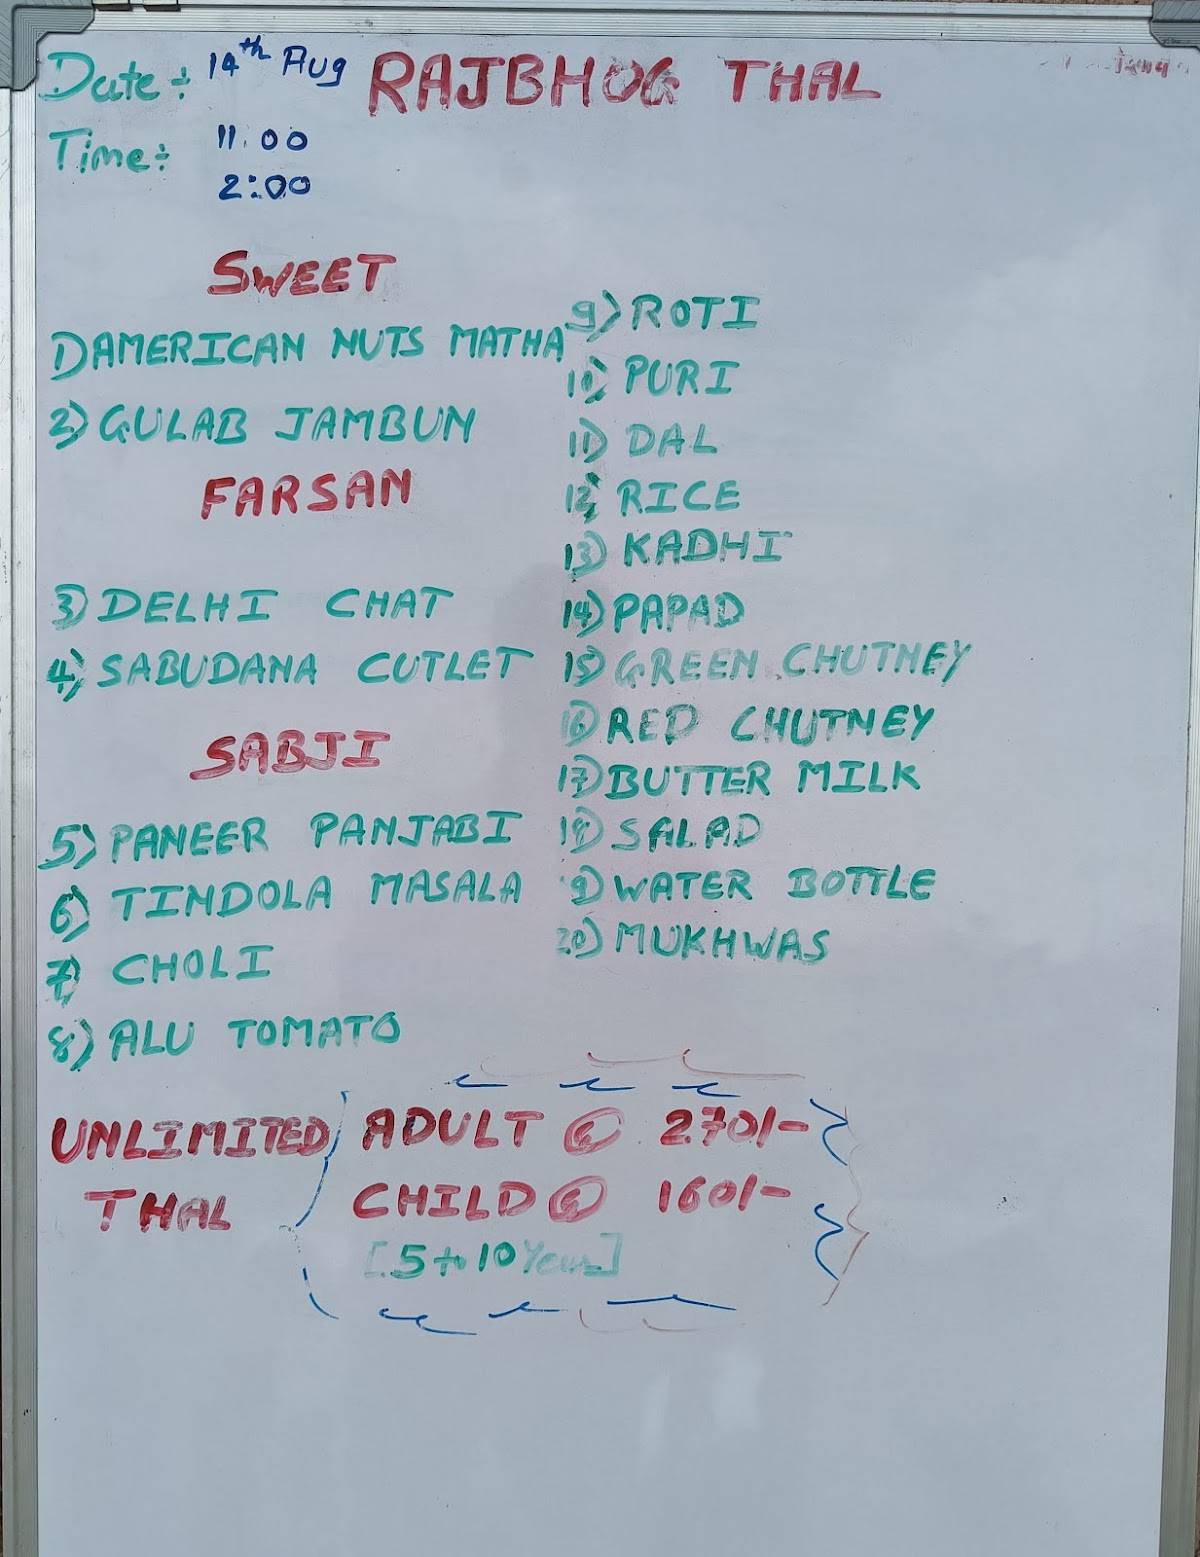 Date ÷ 14th Aug RAJBHOG THAL
Time ÷ 11.00
2:00
SWEET
1) AMERICAN NUTS MATHA
2) GULAB JAMBUN
FARSAN
3) DELHI CHAT
4) SABUDANA CUTLET
SABJI
5) PANEER PANJABI
6) TINDOLA MASALA
7) CHOLI
8) ALU TOMATO
9) ROTI
10) PURI
11) DAL
12) RICE
13) KADHI
14) PAPAD
15) GREEN CHUTNEY
16) RED CHUTNEY
17) BUTTER MILK
18) SALAD
19) WATER BOTTLE
20) MUKHWAS
UNLIMITED THAL
ADULT @ 270/-
CHILD @ 160/-
[5 to 10 Year]